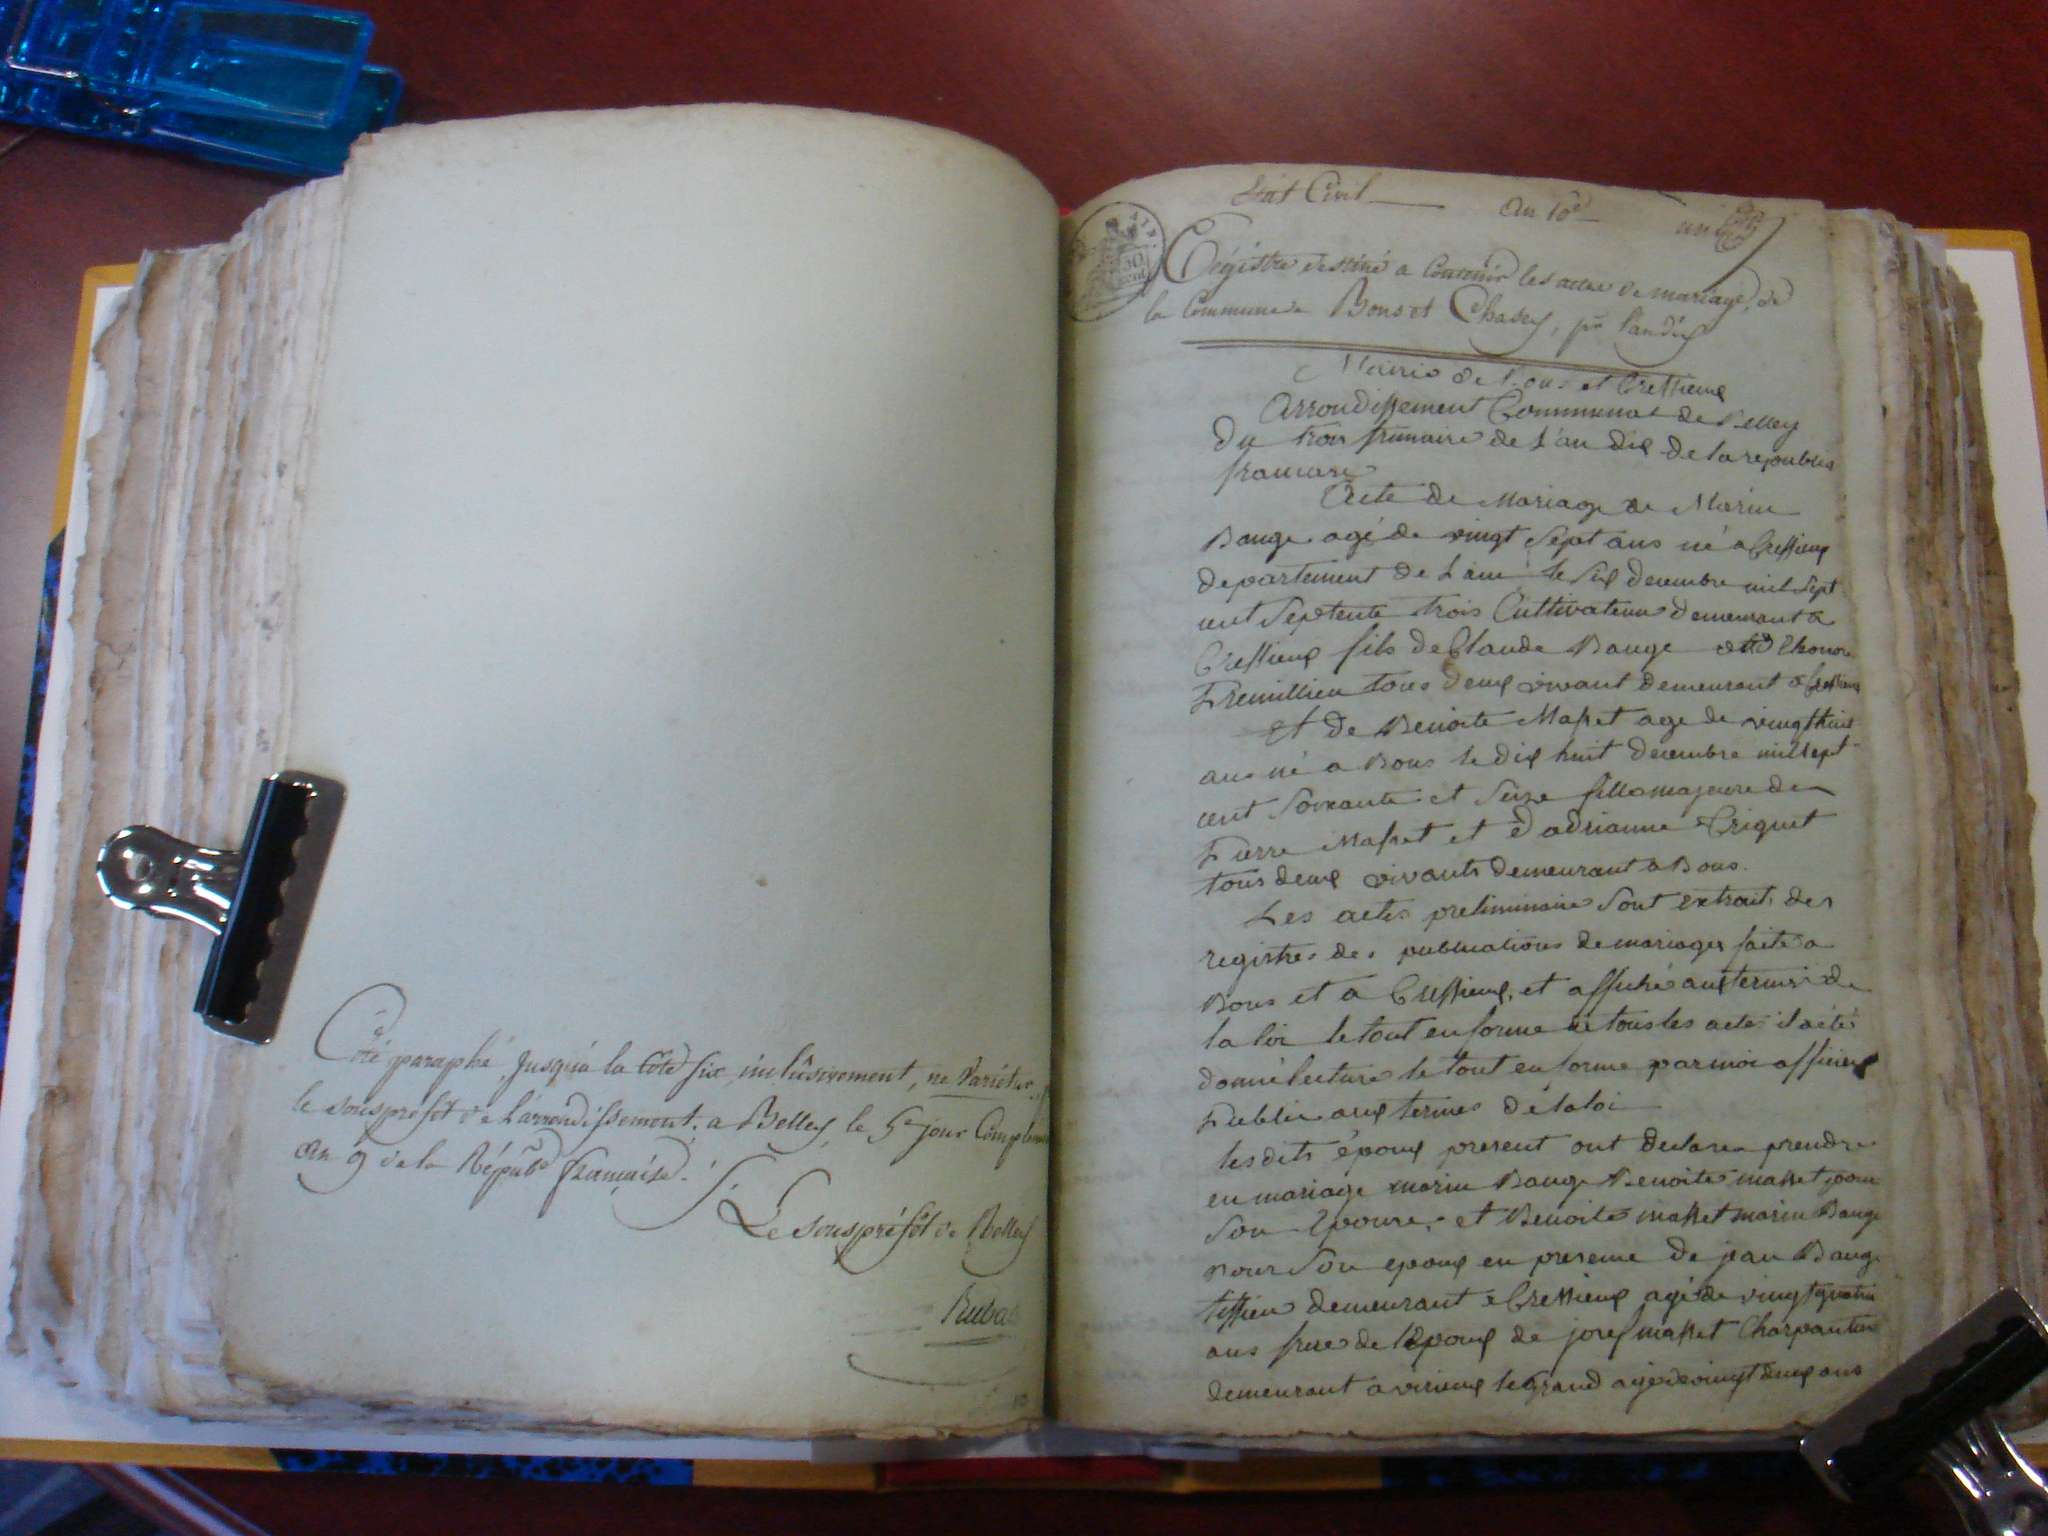 Coté paraphé, jusqu'à la Côte six, inclusivement, ne varietur,
le sousprefêt de l'arrondissement. a Belley, le 5e jour Complem
an 9 de la Répube française.
Le sousprefêt de Belley
Rubat
Etat Civil an 10e un
Régistre destiné a Contenir les actes de mariage, de
la Commune de Bons et Chasey, pr l'an dix
Mairie de Bons et Cressieux
Arrondissement Communal de Belley
Du trois frimaire de l'an dix de la republiq
francaise
Acte de Mariage de Marin
Bauge agé de vingt Sept ans né a Cressieux
departement de Lain le Six decembre mil Sept
cent Septente trois Cultivateur demeurant a
Cressieux fils de Claude Bauge et d honore
Fremillien tous deux vivant demeurant a Cressieux
et de Benoite Masset age de vingt huit
ans né a Bons le dix huit decembre mil sept
cent Soixante et Seize fille majeure de
Pierre Masset et d'adrianne Criquet
tous deux vivants demeurant a Bons.
Les actes preliminaire Sont extrait des
registres des publications de mariages faite a
Bons et a Cressieux, et affiché aux termes de
la loi le tout en forme de tous les actes il a été
donné lecture le tout en forme par moi officier
Public aux termes de la loi
les dits époux present ont declare prendre
en mariage marin Bauge Benoite masset pour
Son Epouse, et Benoite masset marin Bauge
pour Son epoux en presence de jean Bauge
tissieu demeurant a Cressieux agé de vingt quatre
ans frere de l'Epoux de josef masset Charpantier
demeurant a virieux le grand agé de vingt deux ans